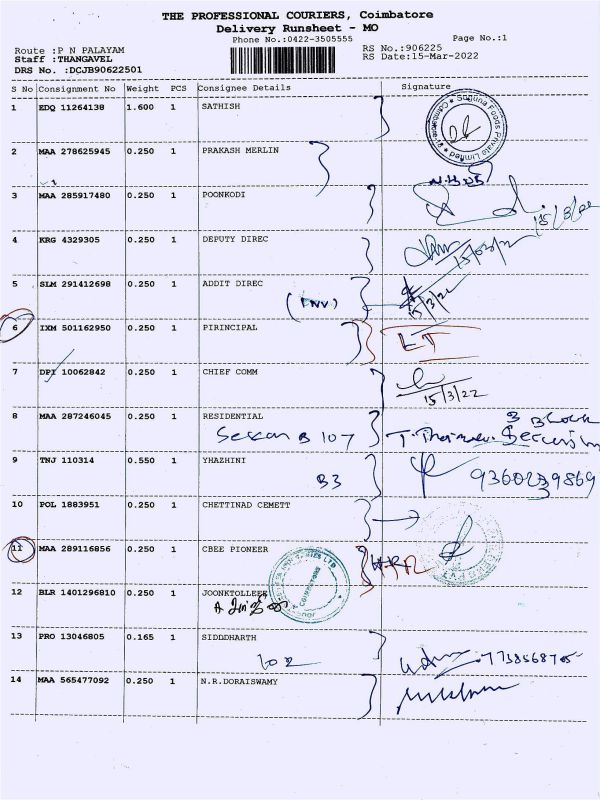 THE PROFESSIONAL COURIERS, Coimbatore
Delivery Runsheet - MO
Phone No.:0422-3505555 Page No.:1
Route :P N PALAYAM RS No.:906225
Staff :THANGAVEL RS Date:15-Mar-2022
DRS No. :DCJB90622501
S No Consignment No Weight PCS Consignee Details Signature
1 EDQ 11264138 1.600 1 SATHISH
Suguna Foods Private Limited * Coimbatore *
2 MAA 278625945 0.250 1 PRAKASH MERLIN
3 MAA 285917480 0.250 1 POONKODI
15/3/22
4 KRG 4329305 0.250 1 DEPUTY DIREC
15/03/22
5 SLM 291412698 0.250 1 ADDIT DIREC
(INV) 15/3/22
6 IXM 501162950 0.250 1 PIRINCIPAL
LT
7 DPI 10062842 0.250 1 CHIEF COMM
15/3/22
8 MAA 287246045 0.250 1 RESIDENTIAL
B Block
B 107
9 TNJ 110314 0.550 1 YHAZHINI
B3 9360239869
10 POL 1883951 0.250 1 CHETTINAD CEMETT
11 MAA 289116856 0.250 1 CBEE PIONEER
12 BLR 1401296810 0.250 1 JOONKTOLLEE
COIMBATORE
13 PRO 13046805 0.165 1 SIDDDHARTH
102
14 MAA 565477092 0.250 1 N.R.DORAISWAMY